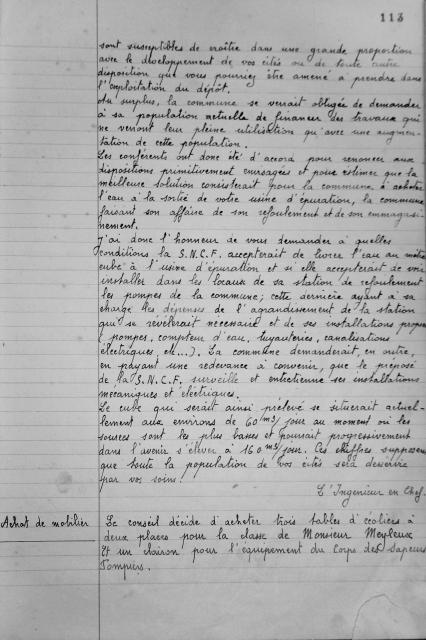 113
sont susceptibles de croître dans une grande proportion
avec le développement de vos cités ou de toute autre
disposition que vous pourriez être amené à prendre dans
l'exploitation du dépôt.
Au surplus, la commune se verrait obligée de demander
à sa population actuelle de financer des travaux qui
ne verront leur pleine utilisation qu'avec une augmen-
tation de cette population.
Les conférents ont donc été d'accord pour renoncer aux
dispositions primitivement envisagées et pour estimer que la
meilleure solution consisterait pour la commune à acheter
l'eau à la sortie de votre usine d'épuration, la commune
faisant son affaire de son refoulement et de son emmagasi-
nement.
J'ai donc l'honneur de vous demander à quelles
conditions la S.N.C.F. accepterait de livrer l'eau au mètre
cube à l'usine d'épuration et si elle accepterait de voir
installer dans les locaux de sa station de refoulement
les pompes de la commune; cette dernière ayant à sa
charge les dépenses de l'agrandissement de la station
qui se révèlerait nécessaire et de ses installations propres
( pompes, compteur d'eau, tuyauteries, canalisations
électriques etc...). La commune demanderait, en outre,
en payant une redevance à convenir, que le préposé
de la S.N.C.F. surveille et entretienne ses installations
mécaniques et électriques.
Le cube qui serait ainsi prélevé se situerait actuel-
lement aux environs de 60 m3/jour au moment où les
sources sont les plus basses et pourrait progressivement
dans l'avenir s'élever à 160 m3/jour. Ces chiffres supposent
que toute la population de vos cités sera desservie
par vos soins.
L'Ingénieur en Chef.
Achat de mobilier
Le conseil décide d'acheter trois tables d'écoliers à
deux places pour la classe de Monsieur Meyleux
Et un clairon pour l'équipement du Corps des Sapeurs
Pompiers.